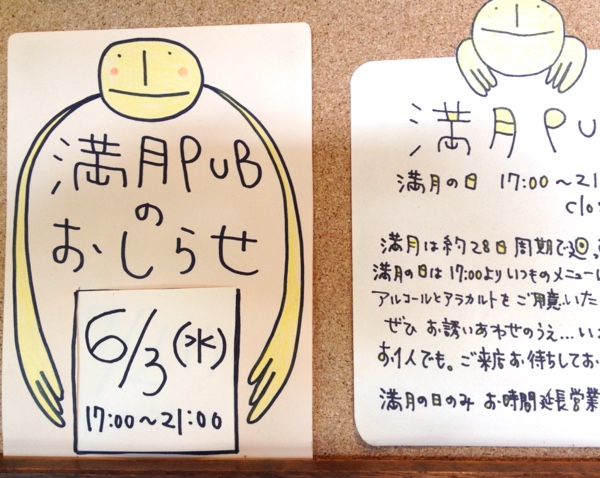 満月PUB
の
おしらせ
6/3(水)
17:00〜21:00
満月PU
満月の日 17:00〜21
clos
満月は約28日周期で廻
満月の日は17:00よりいつものメニューに
アルコールとアラカルトをご用意いた
ぜひ お誘いあわせのうえ…い
お1人でも。ご来店お待ちしてお
満月の日のみ お時間延長営業